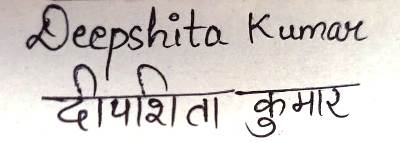 Deepshita Kumar
दीपशिता कुमार